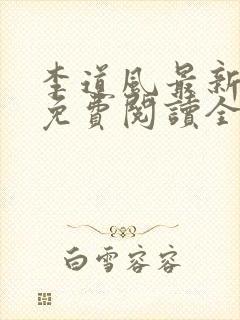 李道风最新
免費閱讀全
白雪容容